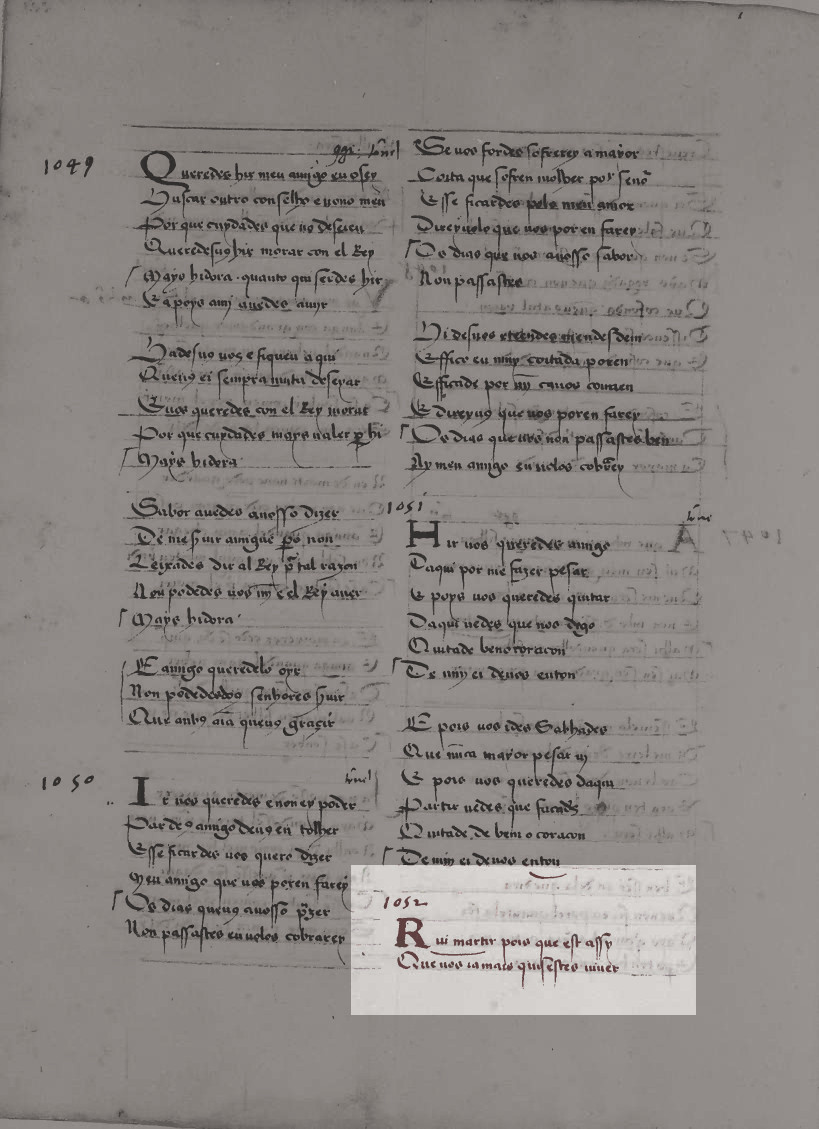 1049
Queredes hir meu amigo eu o sey
Buscar outro conselho e nono meu
Por que cuydades que uo deseieu
Queredesuos hir morar con el Rey
Mays hidora. quanto qui serdes hir
Ca poys amj auedes auijr
Hade uo uos e fiqueu aqui
Que nos ei sempra muita deseiar
E uos queredes con el Rey morar
Por que cuydades mays ualer per hi
Mays hidora
Sabor auedes auosso dizer
De me seruir amigue pero non
Leixades dir al Rey por tal razon
Non podedes uos mi e el Rey auer
Mays hidora
E amigo queredelo oyr
Non podedes dous senhores seruir
Que anbos aia que uos gracir
1050
Ir uos queredes e non ey poder
Par deus amigo deuos en tolher
E sse ficardes uos quero dizer
Meu amigo que uos poren farey
Os dias que uos auosso prazer
Non passastes eu uolos cobrarey
Se uos fordes sofrerey a mayor
Coita que sofreu molher por senor
E sse ficardes pelo meu amor
Direyuolo que uos por en farey
Os dias que uos auosso sabor
Non passastes
Hi desuos e teendes men desdem
E ffico eu muy coitada poren
E fficade por mi ca uos conuen
E direyuos que uos poren farey
Os dias que uos non passastes ben
Ay meu amigo eu uolos cobrarey
1051
Hir uos queredes amigo
Daqui por me fazer pesar
E poys uos queredes quitar
Daqui uedes que uos digo
Quitade ben o coracon
De min ei deuos enton
E pois uos ides Sabhades
Que nunca mayor pesar ui
E pois uos queredes daqui
Partir uedes que facades
Quitade de ben o coracon
De min ei deuos enton
1052
Rui martir pois que est assy
Que uos iamais quisestes uiuer